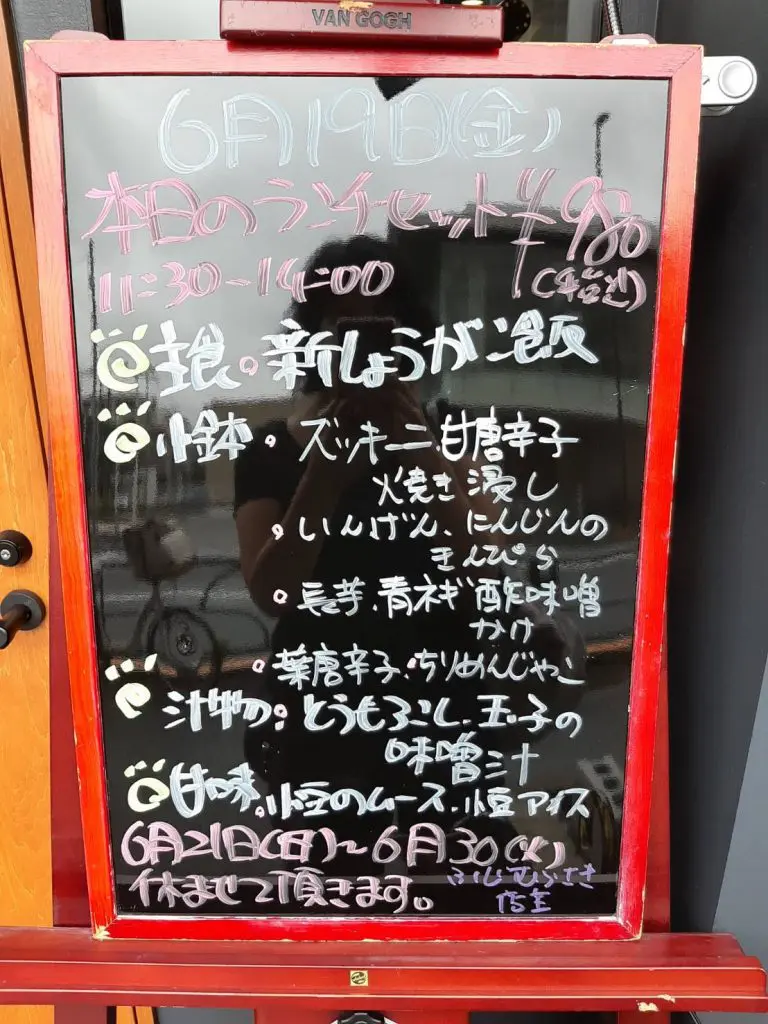 VAN GOGH
6月19日(金)
本日のランチセット ¥980
11:30-14:00 (税込)
主食。新しょうが飯
小鉢。ズッキーニ、甘唐辛子
焼き浸し
。いんげん、にんじんの
きんぴら
。長芋、青ネギ酢味噌
かけ
。葉唐辛子、ちりめんじゃこ
汁物:とうもろこし、玉子の
味噌汁
甘味。小豆のムース、小豆アイス
6月21日(日)~6月30(火)
休ませて頂きます。
店主